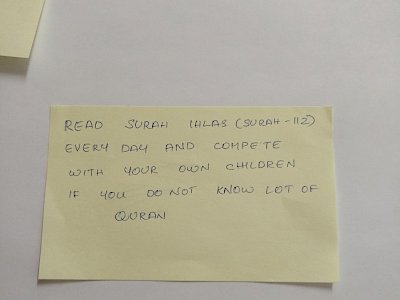 READ SURAH IHLAS (SURAH-112)
EVERY DAY AND COMPETE
WITH YOUR OWN CHILDREN
IF YOU DO NOT KNOW LOT OF
QURAN